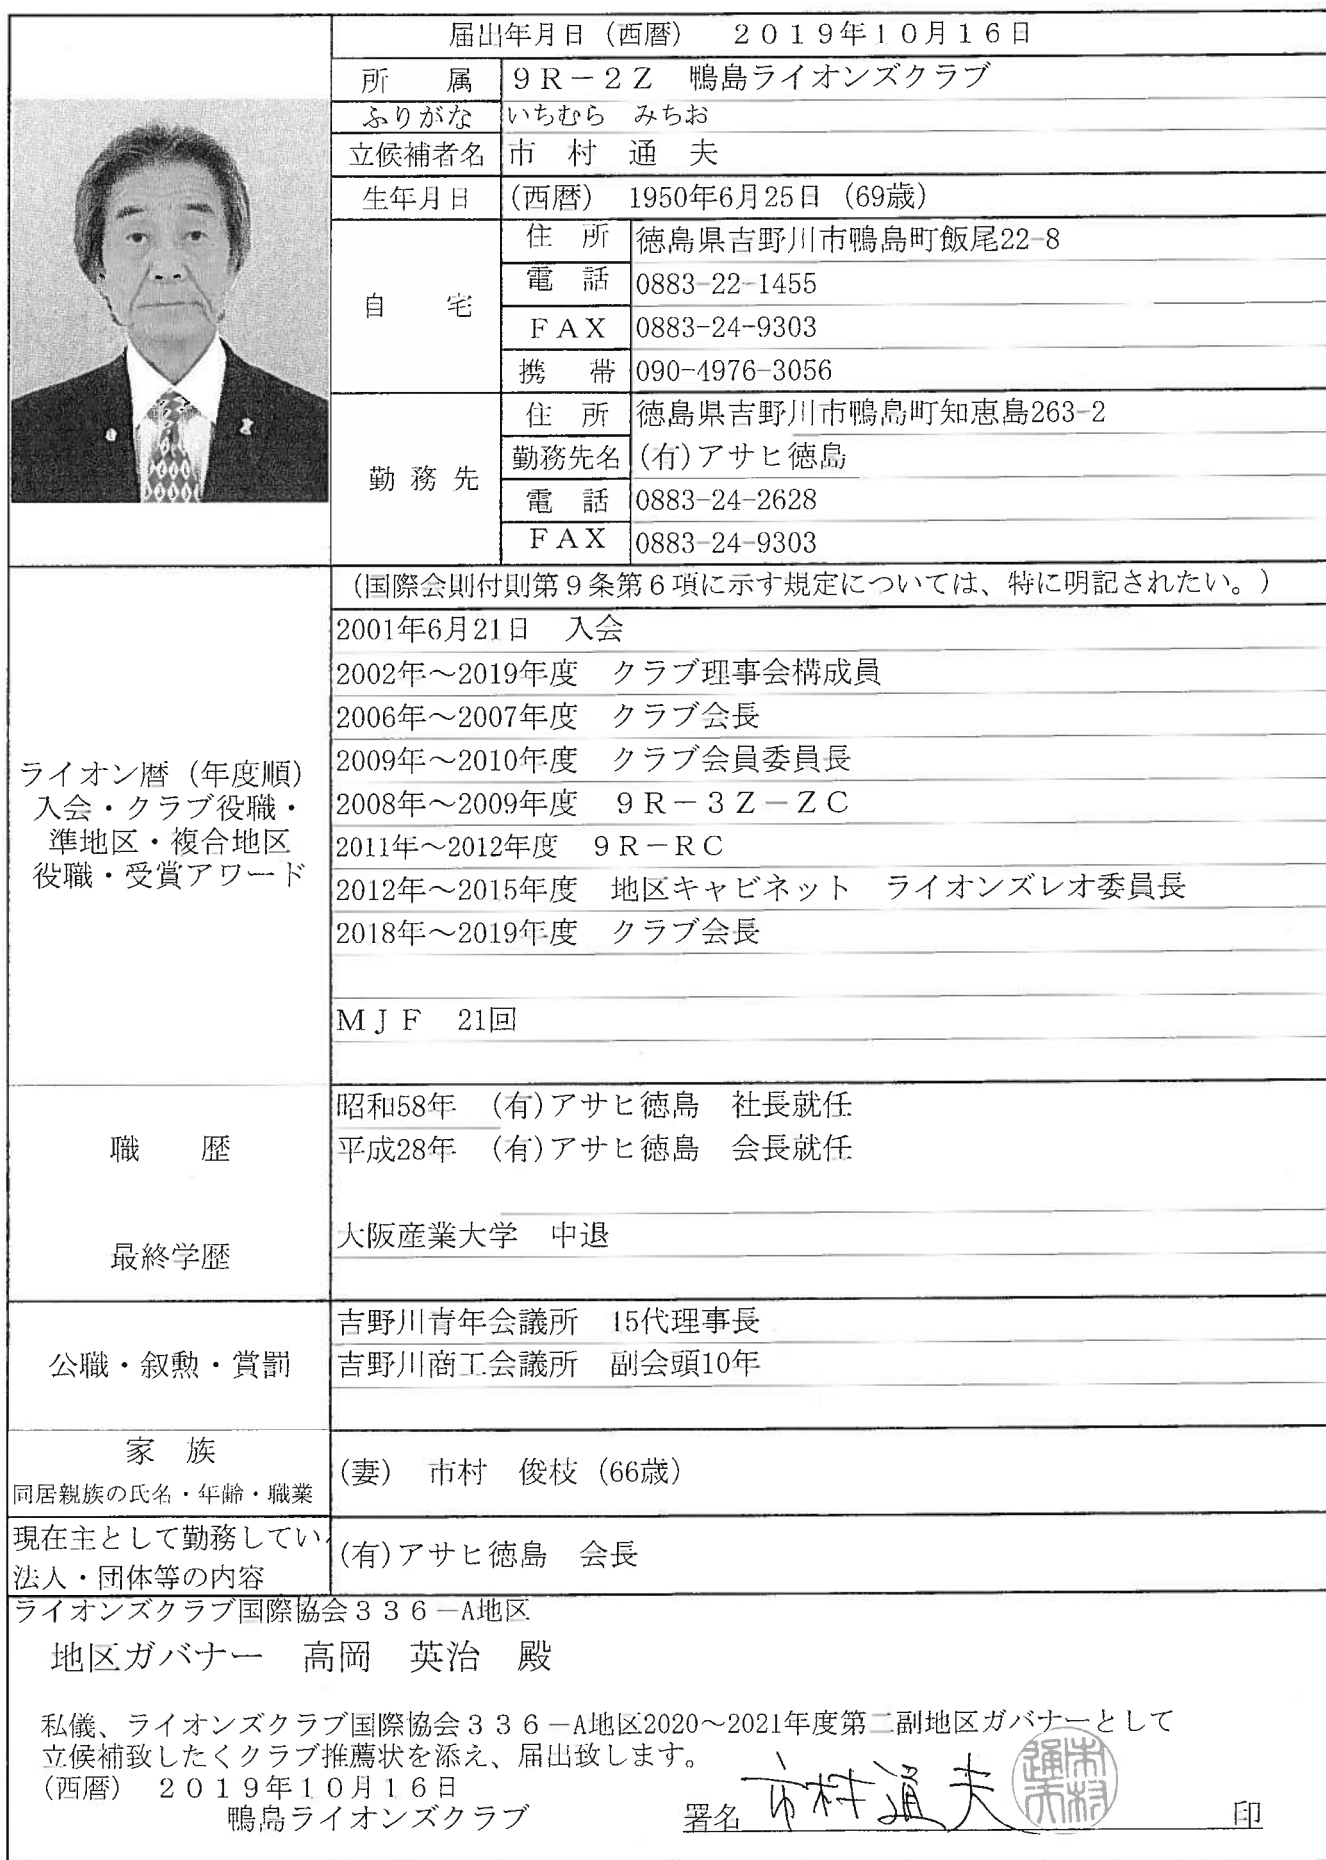 届出年月日（西暦）　２０１９年１０月１６日
所　属　９Ｒ－２Ｚ　鴨島ライオンズクラブ
ふりがな　いちむら　みちお
立候補者名　市　村　通　夫
生年月日　(西暦)　1950年6月25日（69歳）
自　宅
住　所　徳島県吉野川市鴨島町飯尾22-8
電　話　0883-22-1455
ＦＡＸ　0883-24-9303
携　帯　090-4976-3056
勤 務 先
住　所　徳島県吉野川市鴨島町知恵島263-2
勤務先名　(有)アサヒ徳島
電　話　0883-24-2628
ＦＡＸ　0883-24-9303
ライオン暦（年度順）
入会・クラブ役職・
準地区・複合地区
役職・受賞アワード
（国際会則付則第９条第６項に示す規定については、特に明記されたい。）
2001年6月21日　入会
2002年～2019年度　クラブ理事会構成員
2006年～2007年度　クラブ会長
2009年～2010年度　クラブ会員委員長
2008年～2009年度　９Ｒ－３Ｚ－ＺＣ
2011年～2012年度　９Ｒ－ＲＣ
2012年～2015年度　地区キャビネット　ライオンズレオ委員長
2018年～2019年度　クラブ会長
ＭＪＦ　21回
職　　歴
昭和58年　(有)アサヒ徳島　社長就任
平成28年　(有)アサヒ徳島　会長就任
最終学歴
大阪産業大学　中退
公職・叙勲・賞罰
吉野川青年会議所　15代理事長
吉野川商工会議所　副会頭10年
家　族
同居親族の氏名・年齢・職業
(妻)　市村　俊枝（66歳）
現在主として勤務してい
法人・団体等の内容
(有)アサヒ徳島　会長
ライオンズクラブ国際協会３３６－A地区
地区ガバナー　高岡　英治　殿
私儀、ライオンズクラブ国際協会３３６－A地区2020～2021年度第二副地区ガバナーとして
立候補致したくクラブ推薦状を添え、届出致します。
(西暦)　２０１９年１０月１６日
鴨島ライオンズクラブ　署名　市村通夫　印
市村
通夫